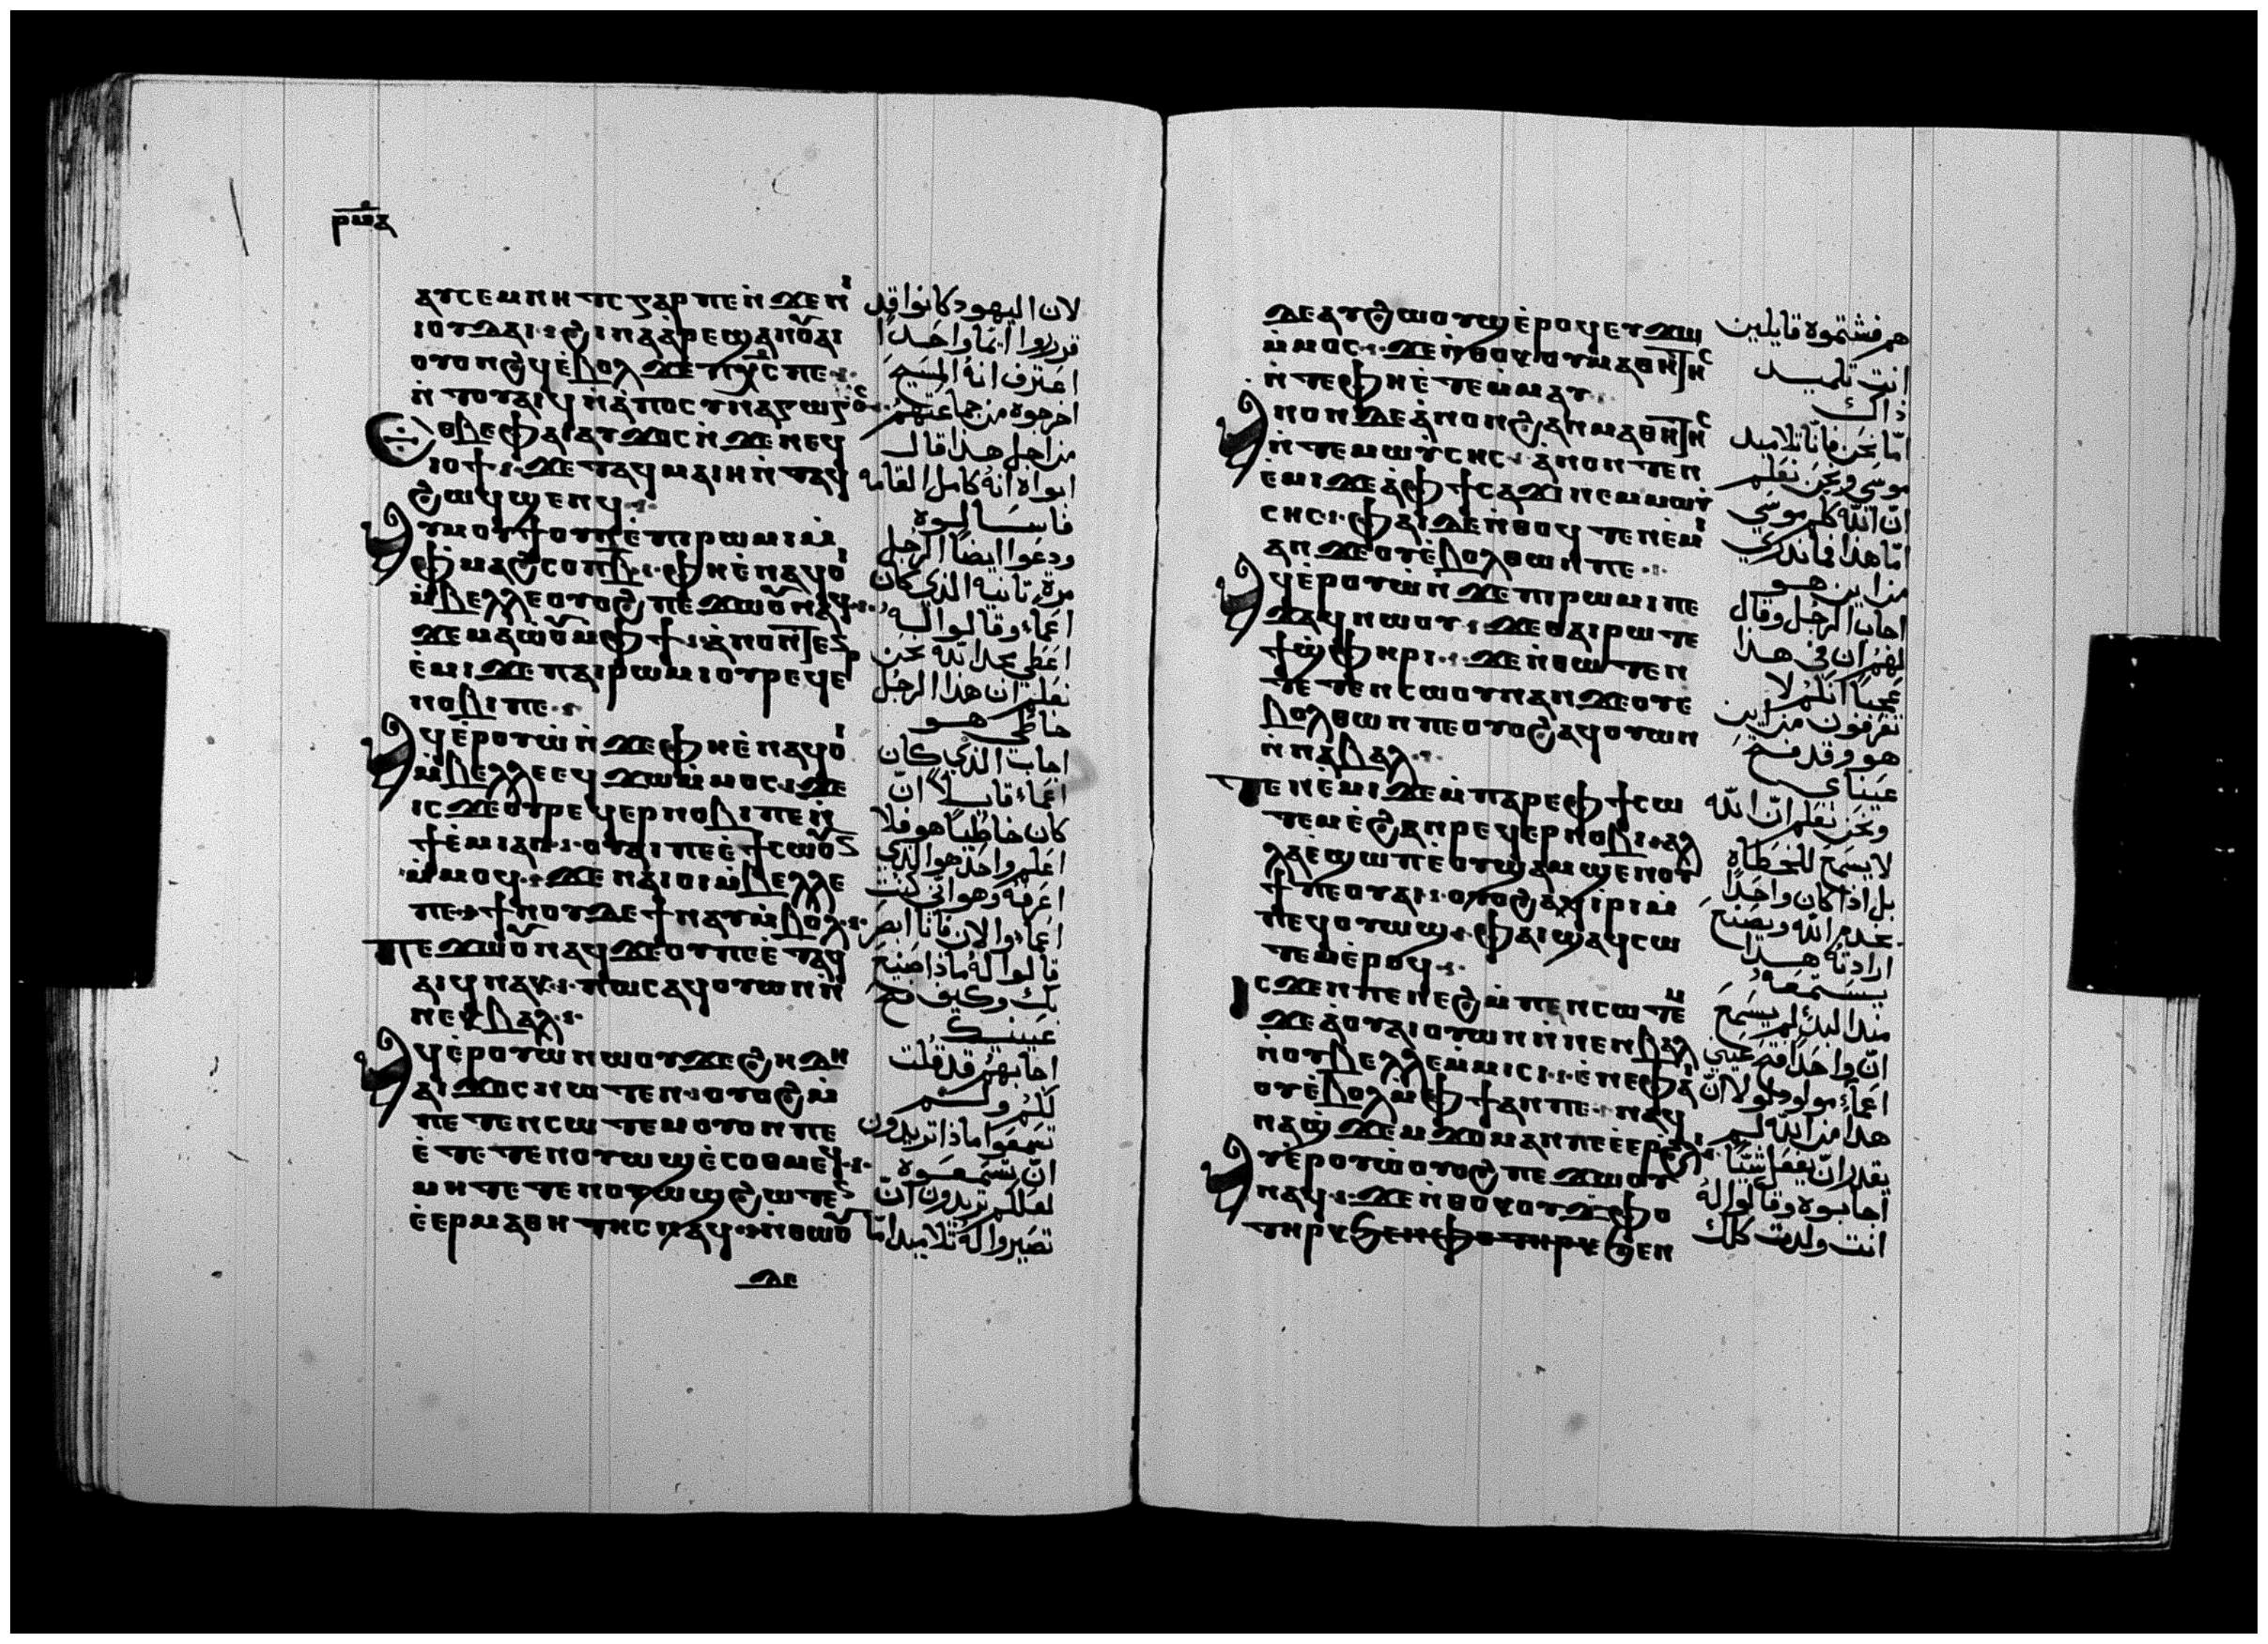 ⲁⲩⲥⲉⲙⲛⲏⲧⲥ ⲅⲁⲣ ⲡⲉ ⲛ̀ϫⲉ ⲛⲓ
ⲓⲟⲩⲇⲁⲓ ϩⲓⲛⲁ ⲁⲣⲉϣⲁⲛ ⲟⲩⲁⲓ
ⲟⲩⲟⲛϩϥ ⲉ̀ⲃⲟⲗ ϫⲉ ⲡⲭ̅ⲥ ⲡⲉ
ⲛ̀ⲧⲟⲩⲁⲓϥ ⲛ̀ⲁⲡⲟⲥⲩⲛⲁⲅⲱⲅⲟⲥ
ⲉⲑⲃⲉ ⲫⲁⲓ ⲁⲩϫⲟⲥ ⲛ̀ϫⲉ ⲛⲉϥ
ⲓⲟϯ ϫⲉ ⲧⲁϥⲙⲁⲓⲏ ⲛ̀ⲧⲁϥ
ϩⲱϥ ϣⲉⲛϥ
ⲁⲩⲙⲟⲩϯ ⲟⲩⲛ ⲉ̀ⲡⲓⲣⲱⲙⲓ ⲙ̀
ⲫⲙⲁϩⲥⲟⲡ ⲃ̅ ⲫⲏ ⲉ̀ⲛⲁϥⲟⲓ
ⲙ̀ⲃⲉⲗⲗⲉ ⲟⲩⲟϩ ⲡⲉϫⲱⲟⲩ ⲛⲁϥ
ϫⲉ ⲙⲁⲱ̀ⲟⲩ ⲙ̀ⲫϯ ⲁⲛⲟⲛ ⲧⲉⲛ
ⲉ̀ⲙⲓ ϫⲉ ⲡⲁⲓⲣⲱⲙⲓ ⲟⲩⲣⲉϥⲉⲣ
ⲛⲟⲃⲓ ⲡⲉ
ⲁϥⲉ̀ⲣⲟⲩⲱ̀ ⲛ̀ϫⲉ ⲫⲏ ⲉ̀ⲛⲁϥⲟⲓ
ⲙ̀ⲃⲉⲗⲗⲉ ⲉϥϫⲱ ⲙ̀ⲙⲟⲥ ϫⲉ
ⲓⲥϫⲉ ⲟⲩⲣⲉϥⲉⲣⲛⲟⲃⲓ ⲡⲉ ⲛ̀
ϯⲉ̀ⲙⲓ ⲁⲛ ⲟⲩⲁⲓ ⲡⲉ ⲉ̀ϯⲥⲱⲟⲩⲛ
ⲙ̀ⲙⲟϥ ϫⲉ ⲛⲁⲓⲟⲓ ⲙ̀ⲃⲉⲗⲗⲉ
ⲡⲉ ϯⲛⲟⲩ ⲇⲉ ϯⲛⲁⲩ ⲙ̀ⲃⲟⲗ
ⲡⲉϫⲱⲟⲩ ⲛⲁϥ ϫⲉ ⲟⲩ ⲡⲉ ⲉ̀ⲧⲁϥ
ⲁⲓϥ ⲛⲁⲕ ⲡⲱⲥ ⲁϥⲟⲩⲱⲛ ⲛ̀
ⲛⲉⲕⲃⲁⲗ
ⲁϥⲉ̀ⲣⲟⲩⲱ̀ ⲛⲱⲟⲩ ϫⲉ ϩⲏⲇⲏ
ⲁⲓϫⲟⲥ ⲛⲱⲧⲉⲛ ⲟⲩⲟϩ ⲙ̀
ⲡⲉⲧⲉⲛⲥⲱⲧⲉⲙ ⲟⲩⲟⲛ ⲡⲉ
ⲉ̀ⲧⲉⲧⲉⲛⲟⲩⲱϣ ⲉ̀ⲥⲟⲑⲙⲉϥ
ⲙⲏ ⲧⲉⲧⲉⲛⲟⲩⲱϣ ϩⲱⲧⲉⲛ
ⲉ̀ⲉⲣⲙⲁⲑⲏⲧⲏⲥ ⲛⲁϥ ⲛ̀ⲑⲱⲟⲩ
ⲇⲉ
لان اليهود كانوا قد
قرروا انما واحدًا
اعترف انهُ المسيح
اخرجوه من جماعتهم
من اجل هذا قال
ابواه انهُ كامل القامه
فاسالوه
ودعوا ايضًا الرجل
مرةٍ تانيه الذي كان
اعماء وقالوا له
اعطي مجدا لله نحن
نعلم ان هذا الرجل
خاطى هو
اجاب الذي كان
اعماء قايلاً ان
كان خاطيًا هو فلا
اعلم واحد هو الذي
اعرفه وهو اني كنت
اعماء والان فانا ابصر
قالوا لهُ ماذا صنع
بك وكيف فتح
عينيك
اجابهم قد قلت
لكم ولم
تسمعوا ماذا تريدون
ان تسمعوه
لعلكم تريدون ان
تصيروا له تلاميد امّا
ⲇⲉ ⲁⲩϩⲱⲟⲩϣ ⲉ̀ⲣⲟϥ ⲉⲩϫⲱ
ⲙ̀ⲙⲟⲥ ϫⲉ ⲛ̀ⲑⲟⲕ ⲟⲩⲙⲁⲑⲏⲧⲏⲥ
ⲛ̀ⲧⲉ ⲫⲏ ⲉ̀ⲧⲉⲙ̀ⲙⲁⲩ
ⲁⲛⲟⲛ ⲇⲉ ⲁⲛⲟⲛ ϩⲁⲛⲙⲁⲑⲏⲧⲏⲥ
ⲛ̀ⲧⲉ ⲙⲱⲩ̀ⲥⲏⲥ ⲁⲛⲟⲛ ⲧⲉⲛ
ⲉ̀ⲙⲓ ϫⲉ ⲁ̀ ⲫϯ ⲥⲁϫⲓ ⲛⲉⲙ ⲙⲱⲩ̀
ⲥⲏⲥ ⲫⲁⲓ ⲇⲉ ⲛ̀ⲑⲟϥ ⲧⲉⲛⲉ̀ⲙⲓ
ⲁⲛ ϫⲉ ⲟⲩⲉ̀ⲃⲟⲗ ⲑⲱⲛ ⲡⲉ
ⲁϥⲉ̀ⲣⲟⲩⲱ̀ ⲛ̀ϫⲉ ⲡⲓⲣⲱⲙⲓ ⲡⲉ
ϫⲁϥ ⲛⲱⲟⲩ ϫⲉ ⲑⲁⲓ ⲣⲱ ⲧⲉ
ϯϣ̀ⲫⲏⲣⲓ ϫⲉ ⲛ̀ⲑⲱⲧⲉⲛ
ⲧⲉⲧⲉⲛⲥⲱⲟⲩⲛ ⲁⲛ ϫⲉ ⲟⲩⲉ̀
ⲃⲟⲗ ⲑⲱⲛ ⲡⲉ ⲟⲩⲟϩ ⲁϥⲟⲩⲱⲛ
ⲛ̀ⲛⲁⲃⲁⲗ
ⲧⲉⲛⲉ̀ⲙⲓ ϫⲉ ⲙ̀ⲡⲁⲣⲉ ⲫϯ ⲥⲱ
ⲧⲉⲙ ⲉ̀ϩⲁⲛⲣⲉϥⲉⲣⲛⲟⲃⲓ ⲁⲗ
ⲗⲁ ⲉϣⲱⲡ ⲉ̀ⲟⲩϣⲁⲙϣⲉⲛⲟⲩ
ϯ ⲡⲉ ⲟⲩⲁⲓ ⲟⲩⲟϩ ⲁϥⲓⲣⲓ ⲙ̀
ⲡⲉϥⲟⲩⲱϣ ⲫⲁⲓ ϣⲁϥⲥⲱ
ⲧⲉⲙ ⲉ̀ⲣⲟϥ
ⲓⲥϫⲉⲛ ⲡⲉⲛⲉϩ ⲙ̀ⲡⲉⲛⲥⲱⲧⲉⲙ
ϫⲉ ⲁ̀ ⲟⲩⲁⲓ ⲟⲩⲱⲛ ⲛ̀ⲛⲉⲛⲃⲁⲗ
ⲛ̀ⲟⲩⲃⲉⲗⲗⲉ ⲙ̀ⲙⲓⲥⲓ ⲉ̀ⲛⲉ ⲫⲁⲓ
ⲟⲩⲉ̀ⲃⲟⲗ ⲙ̀ⲫϯ ⲁⲛ ⲡⲉ ⲛⲁϥ
ⲛⲁϣ̀ϫⲉⲙϫⲟⲙ ⲁⲛ ⲡⲉ ⲉ̀ⲉⲣϩⲗⲓ
ⲁⲩⲉ̀ⲣⲟⲩⲱ̀ ⲟⲩⲟϩ ⲡⲉϫⲱⲟⲩ
ⲛⲁϥ ϫⲉ ⲛ̀ⲑⲟⲕ ⲟⲩϫⲫⲟ
ⲧⲏⲣⲕ ϧⲉⲛ ⲫⲟ ⲧⲏⲣⲕ ϧⲉⲛ
هم فشتموه قايلين
انت تلميد
ذاك
امّا نحن فانّا تلاميد
موسى ونحن نعلم
انّ الله كلم موسى
امّا هذا فما ندري
من اين هو
اجاب الرجُل وقال
لهُم ان في هذا
عجبًا انتم لا
تعرفون من اين
هو وقد فتح
عيناي
ونحن نعلم انّ الله
لا يسمع للخطاه
بل اذا كان واحدًا
يخدم الله ويصنع
ارادته هذا
يستمعهُ
منذ الابد لم يسمع
انّ واحدًا فتح عيني
اعماءٍ مولود لولا انّ
هذا من الله لم
يقدر ان يفعل شيًا
اجابوه وقالوا لهُ
انت ولدت كلك